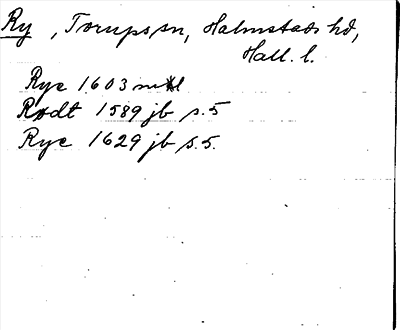 Ry, Torups sn, Halmstads hd,
Hall. l.
Rye 1603 mtl
Rydt 1589 jb s. 5
Rye 1629 jb s. 5.